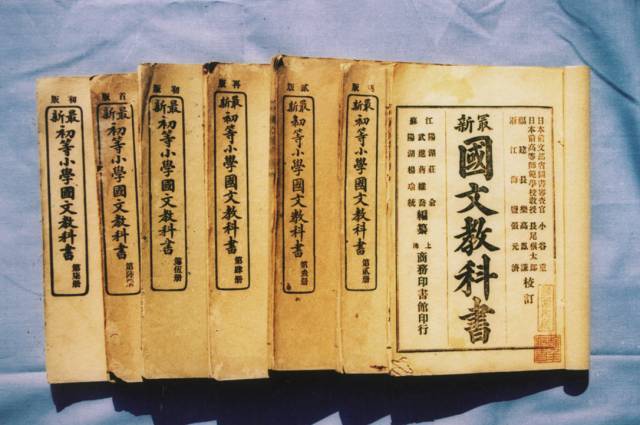 日本前文部省圖書審查官 小谷重
日本前高等師範學校教授 長尾槇太郎
福建長樂高鳳謙
浙江海鹽張元濟
校訂
最新
國文教科書
江蘇
陽湖莊俞
武進蔣維喬
陽湖楊瑜統
編纂
上海商務印書館印行
最新
初等小學國文教科書
第貳册
貳版
最新
初等小學國文教科書
第叁册
再版
最新
初等小學國文教科書
第肆册
初版
最新
初等小學國文教科書
第伍册
首版
最新
初等小學國文教科書
第陸册
初版
最新
初等小學國文教科書
第柒册